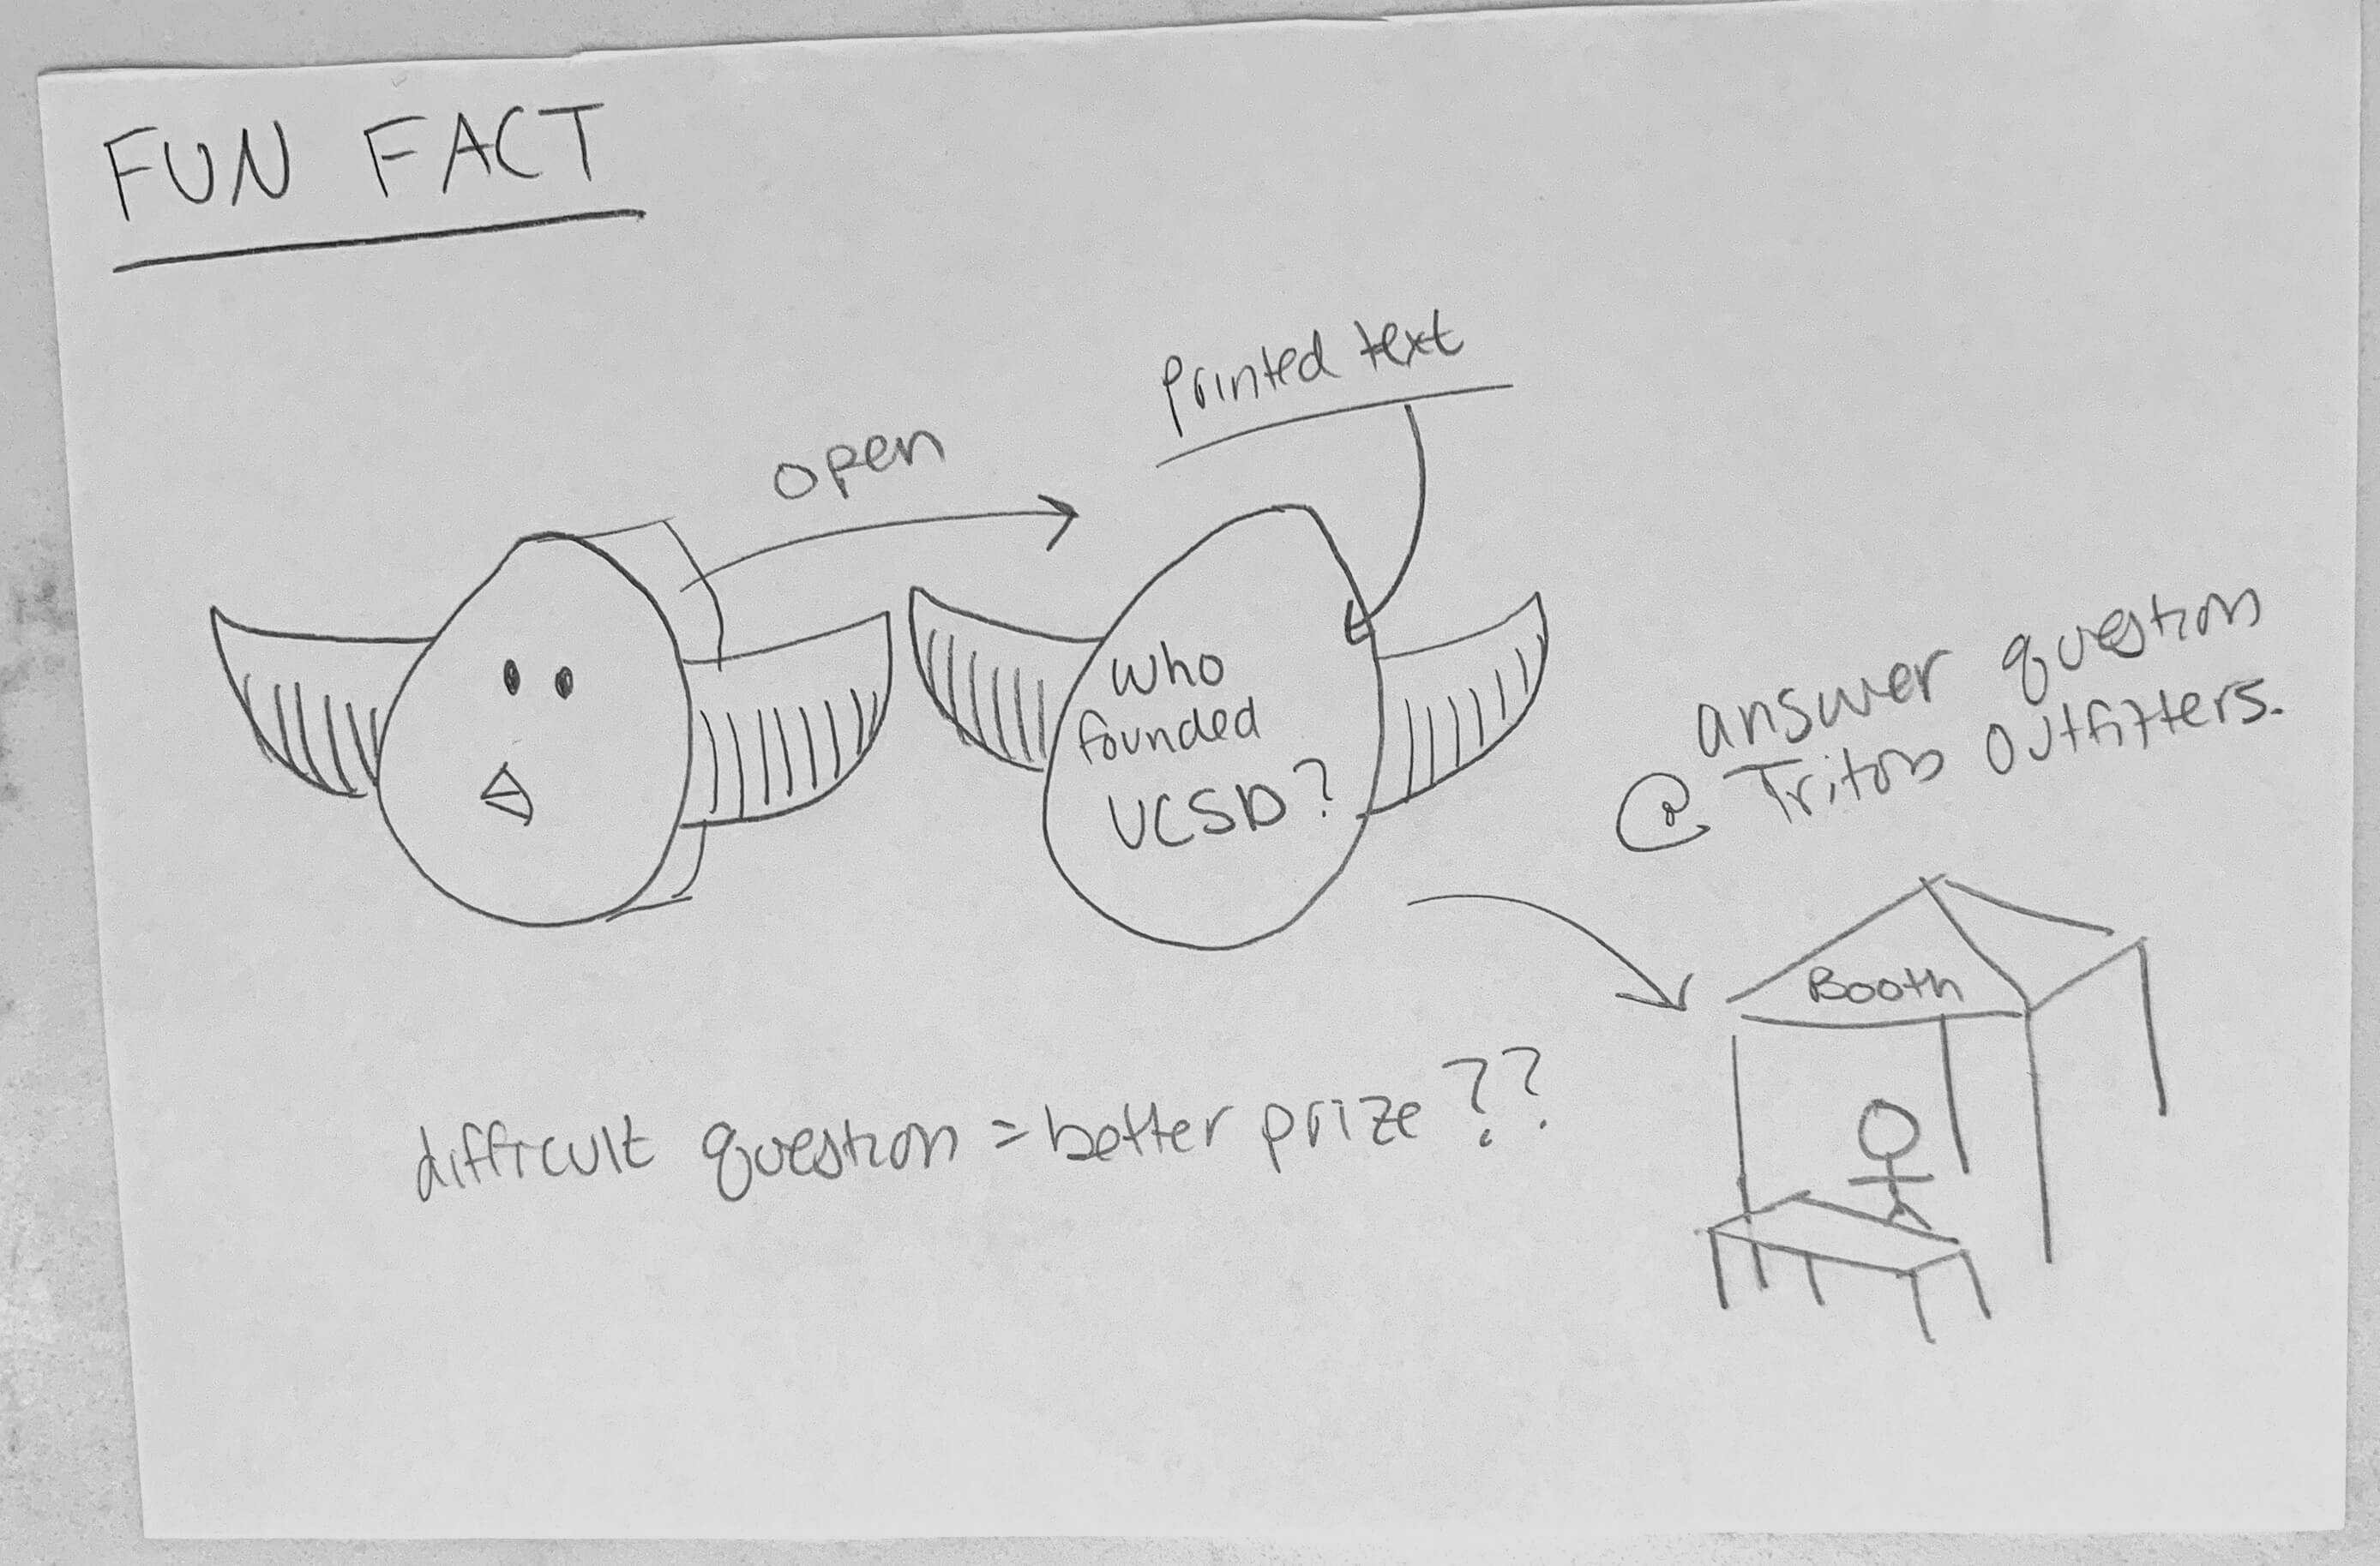 FUN FACT
Printed text
open
who
founded
UCSD?
answer question
@ Triton Outfitters.
Booth
difficult question = better prize??